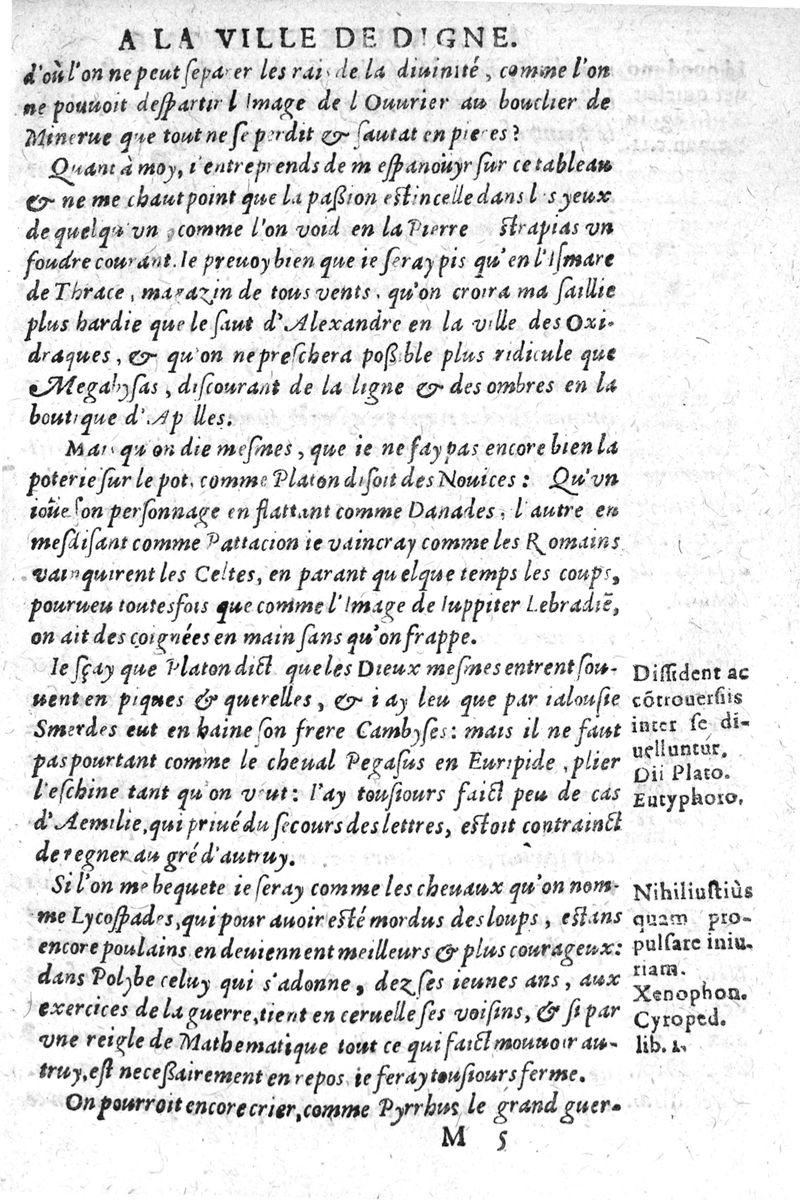 A LA VILLE DE DIGNE.
d'où l'on ne peut separer les rais de la diuinité, comme l'on
ne pouuoit despartir l'Image de l'Ouurier au bouclier de
Minerue que tout ne se perdit & sautat en pieces?
Quant à moy, i'entreprends de m'espanoüyr sur ce tableau
& ne me chaut point que la passion estincelle dans les yeux
de quelqu'vn, comme l'on void en la Pierre strapias vn
foudre courant. Ie preuoy bien que ie seray pis qu'en l'Ismare
de Thrace, magazin de tous vents, qu'on croira ma saillie
plus hardie que le saut d'Alexandre en la ville des Oxi-
draques, & qu'on ne preschera possible plus ridicule que
Megabysas, discourant de la ligne & des ombres en la
boutique d'Apelles.
Mais qu'on die mesmes, que ie ne fay pas encore bien la
poterie sur le pot, comme Platon disoit des Nouices: Qu'vn
ioüe son personnage en flattant comme Danades, l'autre en
mesdisant comme Pattacion ie vaincray comme les Romains
vainquirent les Celtes, en parant quelque temps les coups,
pourueu toutesfois que comme l'Image de Iuppiter Lebradiē,
on ait des coignées en main sans qu'on frappe.
Ie sçay que Platon dict que les Dieux mesmes entrent sou-
uent en piques & querelles, & i'ay leu que par ialousie
Smerdes eut en haine son frere Cambyses: mais il ne faut
pas pourtant comme le cheual Pegasus en Euripide, plier
l'eschine tant qu'on veut: I'ay tousiours faict peu de cas
d'Aemilie, qui priué du secours des lettres, estoit contrainct
de regner au gré d'autruy.
Dissident ac
cōtrouersiis
inter se di-
uelluntur.
Dii Plato.
Eutyphoro.
Si l'on me bequete ie seray comme les cheuaux qu'on nom-
me Lycospades, qui pour auoir esté mordus des loups, estans
encore poulains en deuiennent meilleurs & plus courageux:
dans Polybe celuy qui s'adonne, dez ses ieunes ans, aux
exercices de la guerre, tient en ceruelle ses voisins, & si par
vne reigle de Mathematique tout ce qui faict mouuoir au-
truy, est necessairement en repos ie feray tousiours ferme.
Nihil iustiùs
quam pro-
pulsare iniu-
riam.
Xenophon.
Cyroped.
lib. 1.
On pourroit encore crier, comme Pyrrhus le grand guer-
M 5